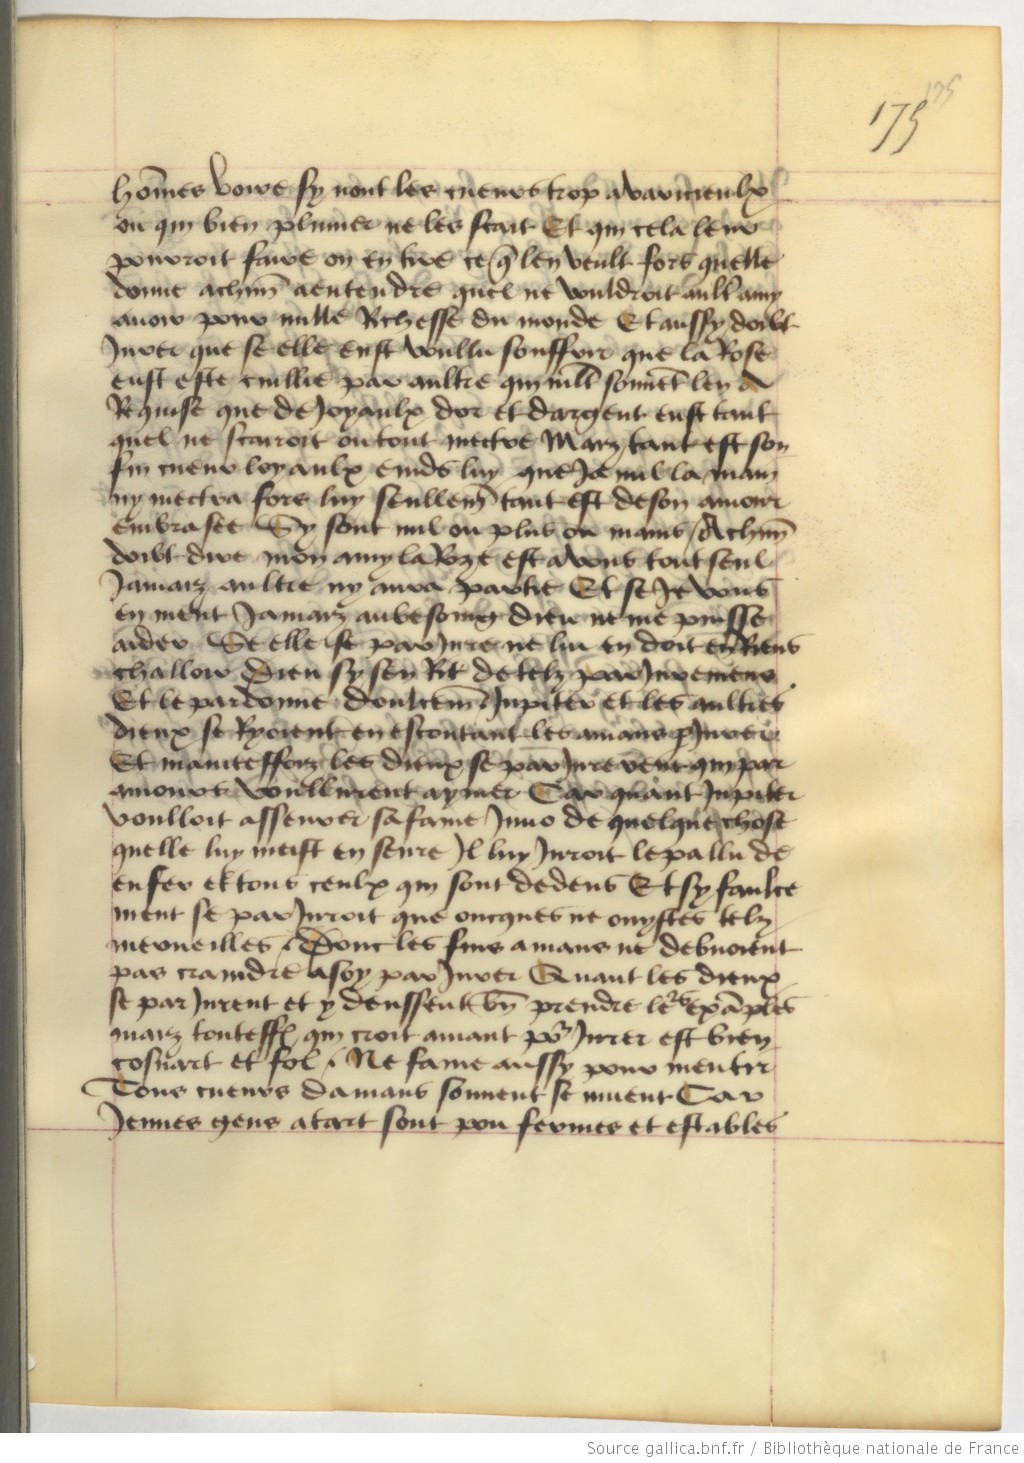 175
175
hom̄es voire sy nont les cueurs trop avaricieulx
ou qui bien plumer ne les scait Et qui cela leur
pouroit faire on en tire ce q̄ len veult fors quelle
donne achūn aentendre quel ne vouldroit aultͬ amy
avoir pour nulle Richesse du monde Et aussy doibt
Jurer que se elle eust voullu souffrir que la Rose
eust este cuillie par aultre qui mlͭ souuēt len a
Requise que de Joyaulx dor et dargent eust tant
quel ne scairoit ou tout mectre Marz tant est son
fin cueur loyaulx euūs luy que Ja nul la main
ny mectra fors luy seullemͭ tant est de son amour
embrasee Sy sont mil ou plus ou mains Achūn
doibt dire mon amy la Roze est a vous tout seul
Jamarz aultre ny aura partie Et se Je vous
en ment Jamarz au besoing dieu ne me puisse
aider Se elle se par Jure ne lui en doit en Riens
challoir Dieu sy sen Rit de telz par Juremens
Et le pardonne doulcemͭ Jupiter et les aultres
dieux se Ryoient en escoutant les amans ꝑ Jurer
Et maintesfforz les dieux se par Jurerent qui par
amours voullurent aymer Car quant Jupiter
voulloit asseurer sa fame Juno de quelque chose
quelle luy meist en seure Il luy Juroit le pallu de
enfer et tous ceulx qui sont dedens Et sy faulce
ment se par Juroit que oncques ne ouystes telz
merueilles Donc les fins amans ne debuoient
pas craindre a soy par Jurer Quant les dieux
se par Jurent et y deussent bn̄ prendre lers exāples
marz toutesffͬ qui croit amant pͬ Jurer est bien
cosnart et fol Ne fame aussy pour mentir
Tous cueurs damans souuent se muent Car
Jennes gens a tart sont pou fermes et estables
Source gallica.bnf.fr / Bibliothèque nationale de France